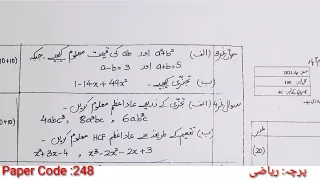 سوال نمبر 3 (الف) a²+b² اور ab کی قیمت معلوم کیجیے جبکہ
a-b=3 اور a+b=5
(ب) تجزی کیجیے۔
1-14x+49x²
سوال نمبر 4 (الف) تجزی کے ذریعے عاداعظم معلوم کریں۔
4abc³, 8a³bc, 6ab³c
(ب) تقسیم کے طریقے سے عاداعظم HCF معلوم کریں۔
x²+3x-4, x³-2x²-2x+3
(10+10)
(20)
نمبر
Paper Code :248
پرچہ: ریاضی